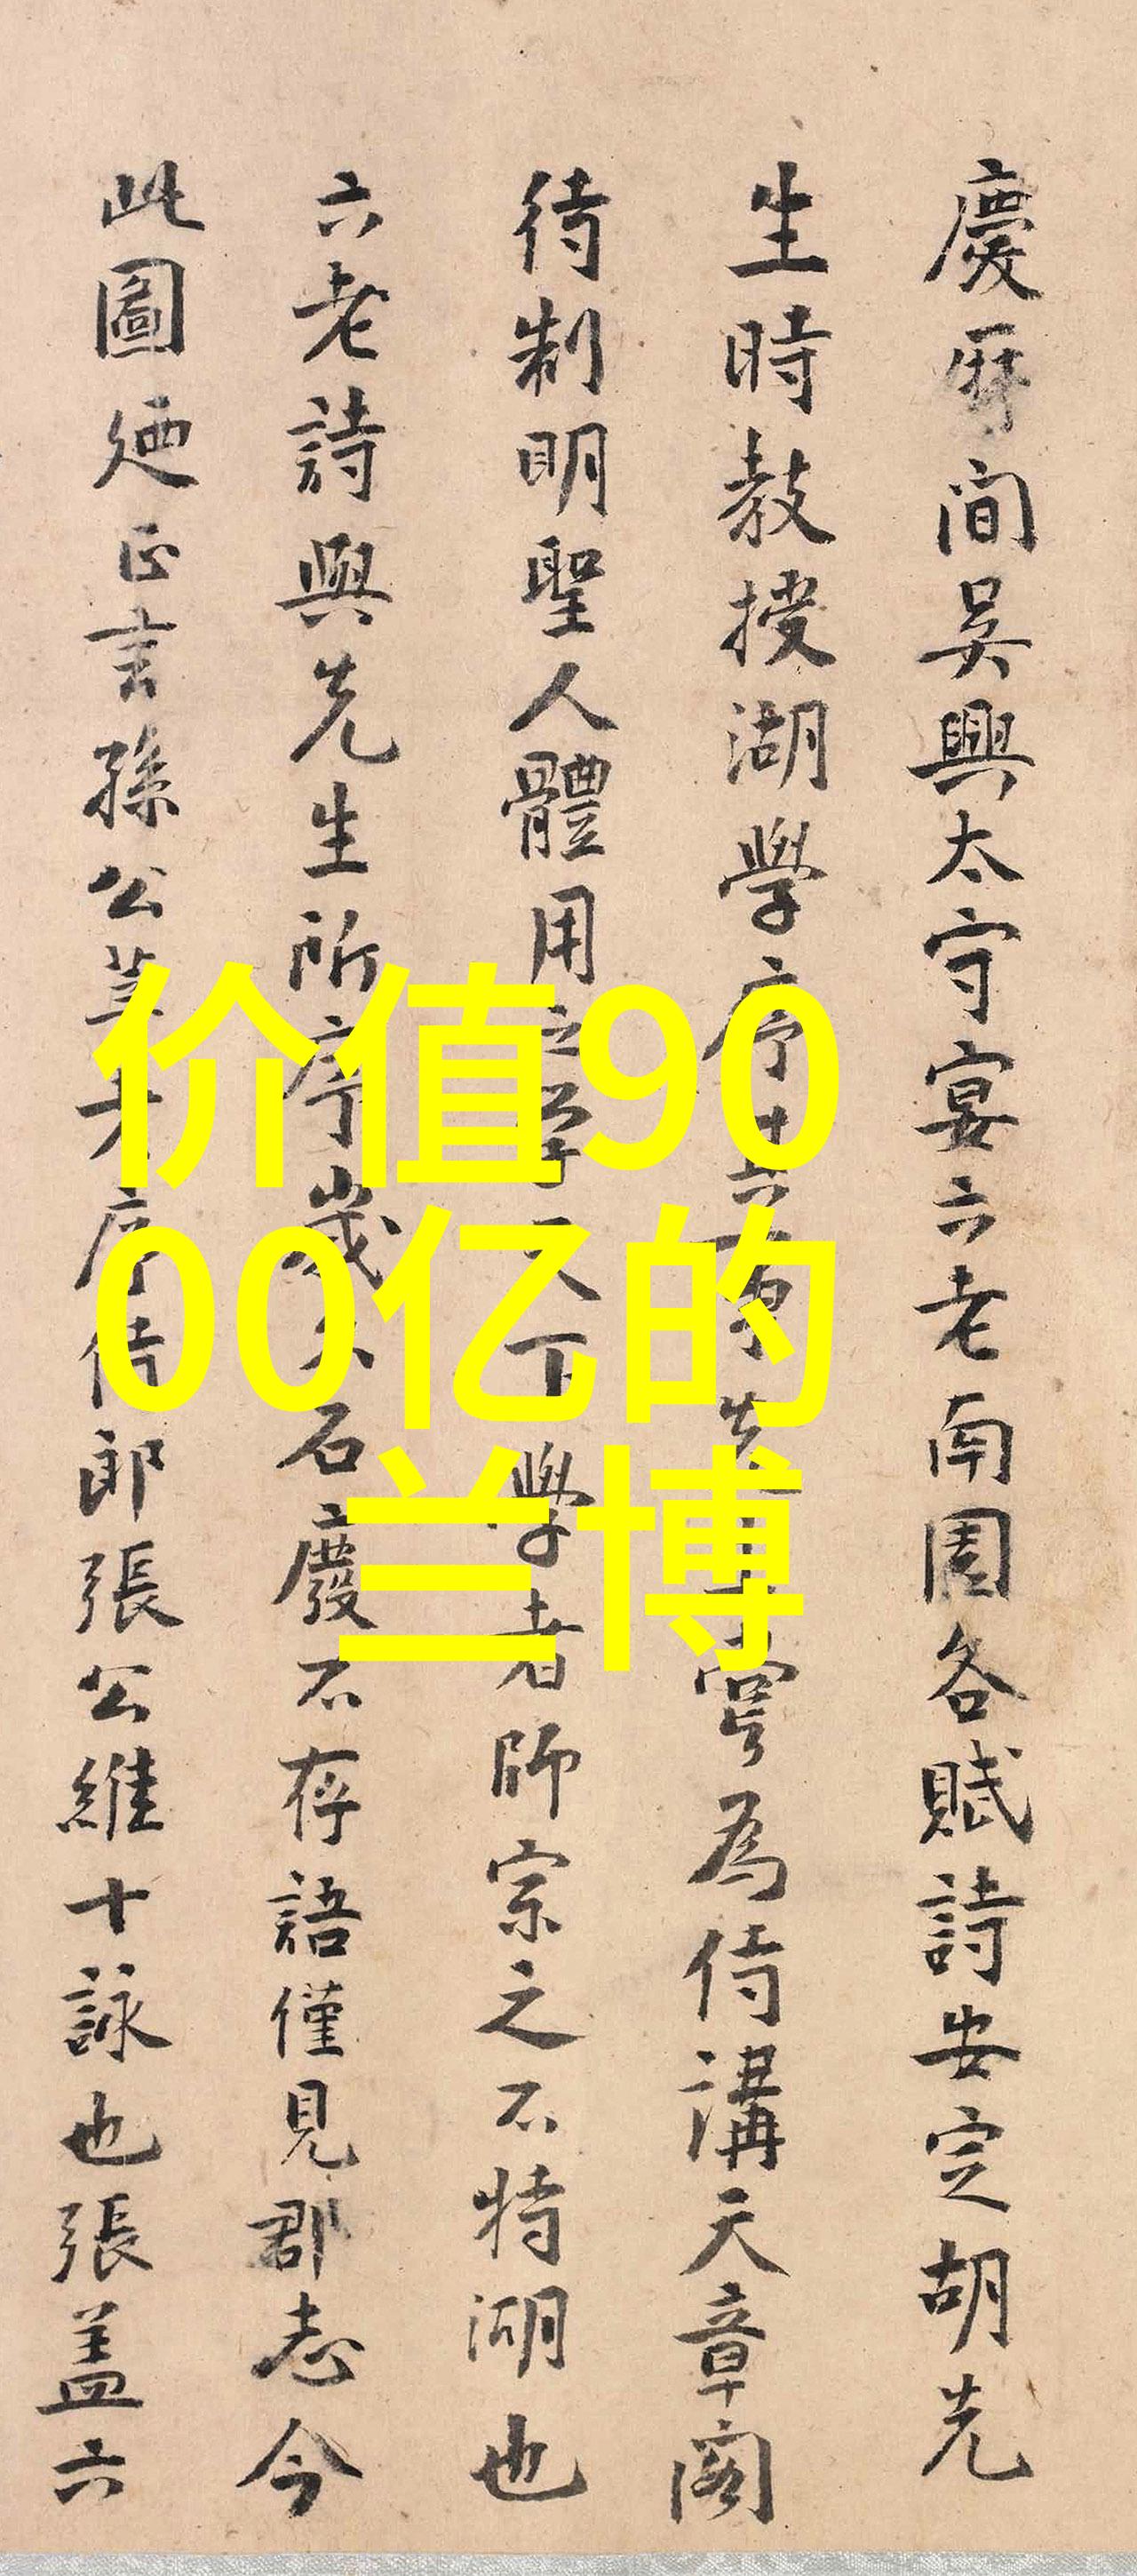 慶曆間吴興太守宴六老南園各賦詩安定胡先
生時教授湖學序十六書先寕為侍講天章閣
待制明聖人體用之學天下學者師宗之不特湖也
六老詩與先生所序歲久石廢不存語僅見郡志今
此圖廼正言孫公序侍郎張公維十詠也張盖六
价值90
00亿的
兰博